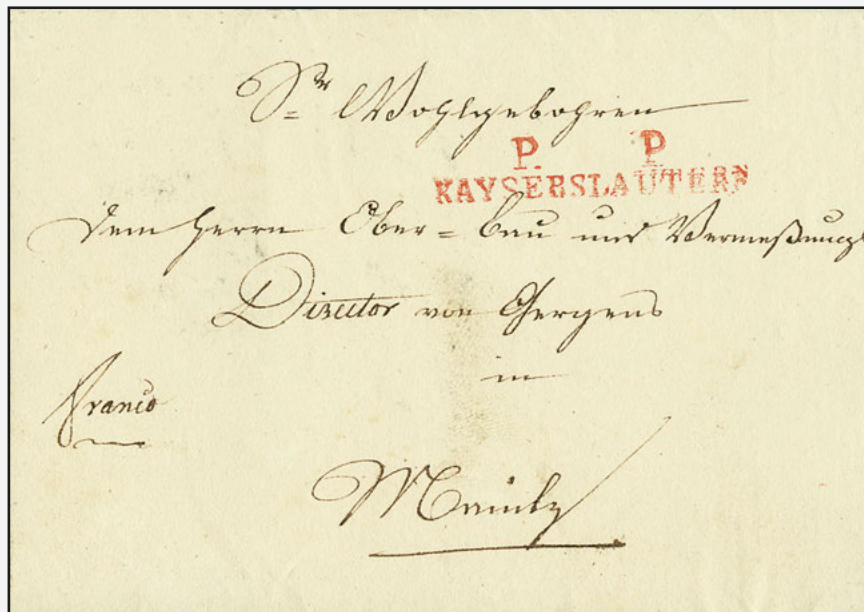 Sr Wohlgebohren
P. P
KAYSERSLAUTERN
dem Herrn Ober= Bau und Vermeßungs
Director von Gergens
in
Franco
Maintz